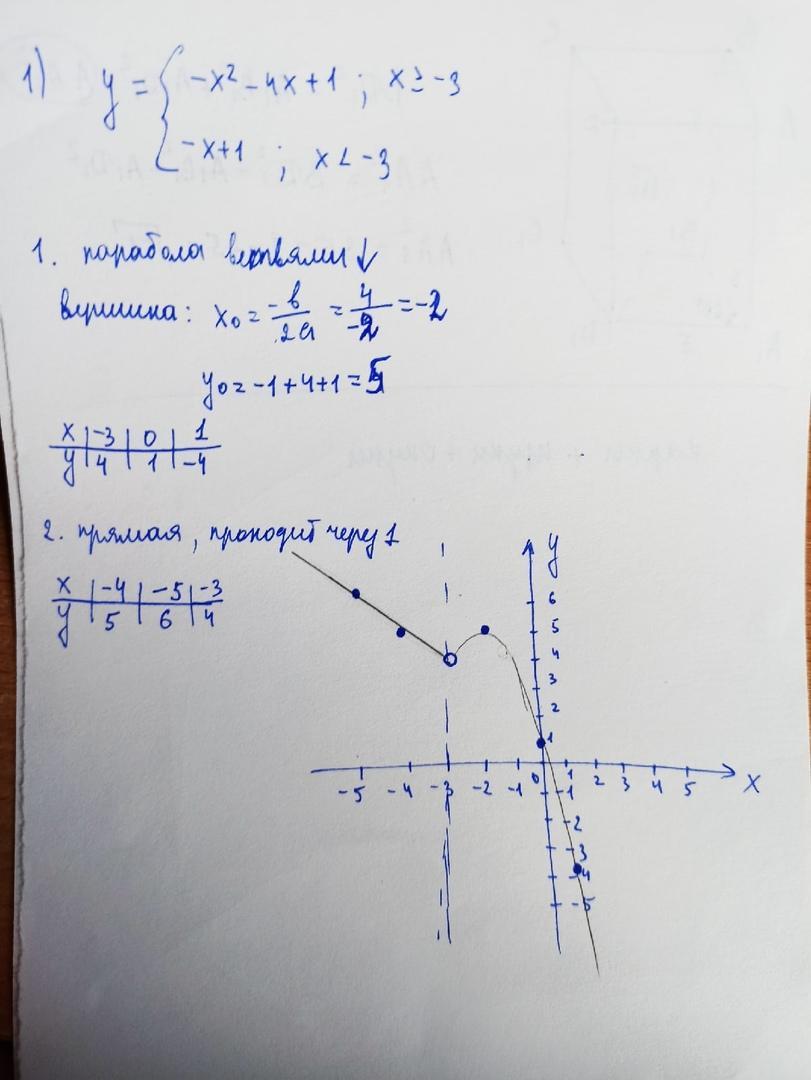 1) y = { -x² - 4x + 1 ; x ≥ -3
-x+1 ; x < -3
1. парабола ветвями ↓
вершина: x₀ = -b/2a = 4/-2 = -2
y₀ = -1+4+1 = 5
x | -3 | 0 | 1
y | 4 | 1 | -4
2. прямая, проходит через 1
x | -4 | -5 | -3
y | 5 | 6 | 4
y
6
5
4
3
2
1
-5 -4 -3 -2 -1 0 1 2 3 4 5 x
-1
-2
-3
-4
-5